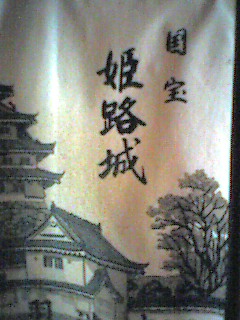 国宝
姫路城